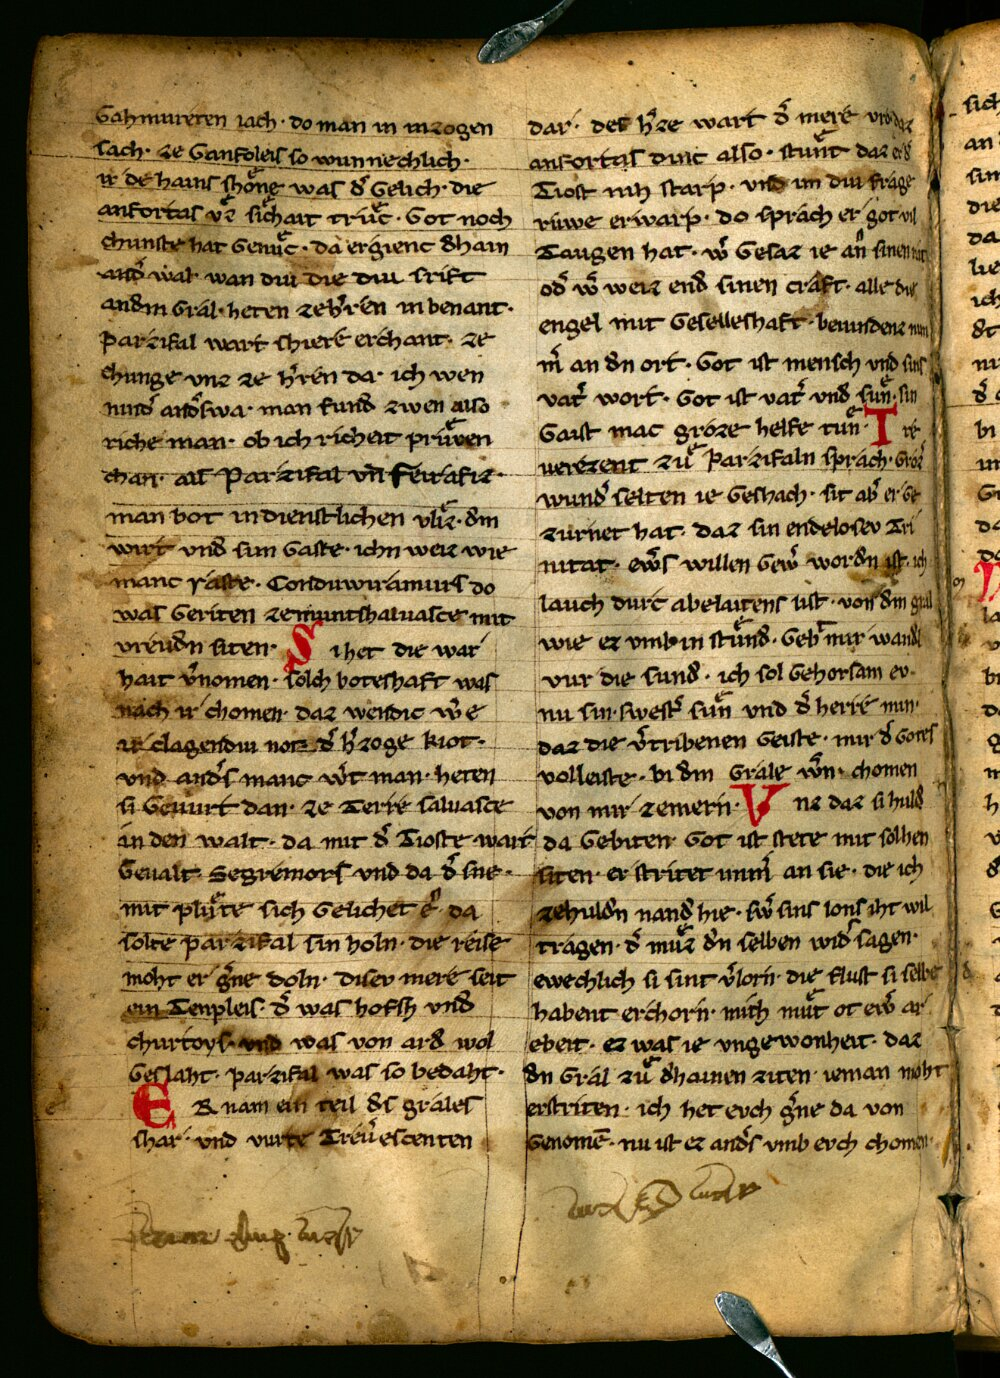 Gahmureten iach · do man in inzogen
sach · ze Ganfoleis so wunnechlich ·
ir de hains shoͤne was dˢ Gelich · die
anfortas vͤz sichait truͤc · Got noch
chunste hat Genuͤc · da ergienc dhain
andˢ wal · wan diu die diu srift
andm Gral · heten zehˢren in benant ·
parzifal wart shiere erchant · ze
chunge vnz ze hˢren da · ich wen
nindˢ andˢswa · man fund zwen also
riche man · ob ich richeit pruͤven
chan · als Parzifal vn̄ feirafiz ·
man bot in dienstlichen vliz · dm
wirt vnd sim Gaste · ichn weiz wie
manc raste · Conduwiramurs do
was Geriten ze muntshaluasce mit
vreudn siten · Si het die war
hait vˢnomen · solch boteshaft was
nach ir chomen · daz wendic wˢe
ir clagendiu not · dˢ hˢzoge kiot ·
vnd andˢs manc wˢt man · heten
si Gevurt dan · ze Terre saluasce
in den walt · da mit dˢ Tioste wart
Geualt · Segremors vnd da dˢ sne ·
mit pluͤte sich Gelichet ē · da
solte parzifal sin holn · die reise
moht er gˢne doln · disev mere seit
ein Templeis · dˢ was hofsh vnd
churtoys · vnd was von ard wol
Geslaht · parzifal was so bedaht ·
ER nam ein teil ds grales
shar · vnd vurte Treuˢescenten
dar · des hˢze wart dˢ mere vro daz
anfortas dinc also · stuͤnt daz er dˢ
Tiost niht starp · vnd im diu frage
ruwe erwarp · do sprach er got vil
Taugen hat · wˢ Gesaz ie an sinen rat
odˢ wˢ weiz end sinen craft · alle die
engel mit Geselleshaft · beuindenz nim
mˢ an dn ort · Got ist mensch vnd sins
vatˢ wort · Got ist vatˢ vnd suͤn · sin
Gaist mac groze helfe tuͤn · Tre
verezent zuͤ Parzifaln sprach · Groz
wundˢ selten ie Geshach · sit abˢ er ge
zurnet hat · daz sin endelosev Tri
nitat · ewˢs willen Gewˢ wordn ist · ich
lauch durc abelaitens list · von dm gral
wie ez vmb in stuͤnd · Gebt mir wandl
vur die sund · ich sol Gehorsam ev ·
nu sin · swestˢ suͤn vnd dˢ herre min ·
daz die vˢtribenen Geiste · mit dˢ Gotes
volleiste · bi dm Grale wˢn · chomen
von mir zemern · Vnz daz si huld
da Gebiten · Got ist stete mit solhen
siten · er stritet immˢ an sie · die ich
zehuldn nand hie · swˢ sins lons iht wil
tragen · dˢ muͤz dn selben widˢsagen ·
ewechlich si sint vˢlorn · die flust si selbe
habent erchorn · mich muͤt ot ewˢ ar
ebeit · ez was ie vngewonheit · daz
dn Gral zuͤ dhainen ziten · ieman moht
erstriten · ich het evch gˢne da von
Genomē · nu ist ez andˢs vmb evch chomen ·